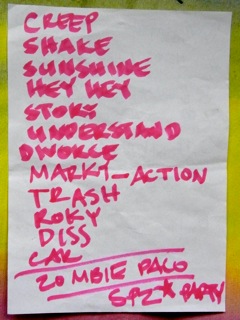 CREEP
SHAKE
SUNSHINE
HEY HEY
STORY
UNDERSTAND
DWORCE
MARKY-ACTION
TRASH
ROKY
DISS
CAR
ZOMBIE PACO
SPZ* PARTY